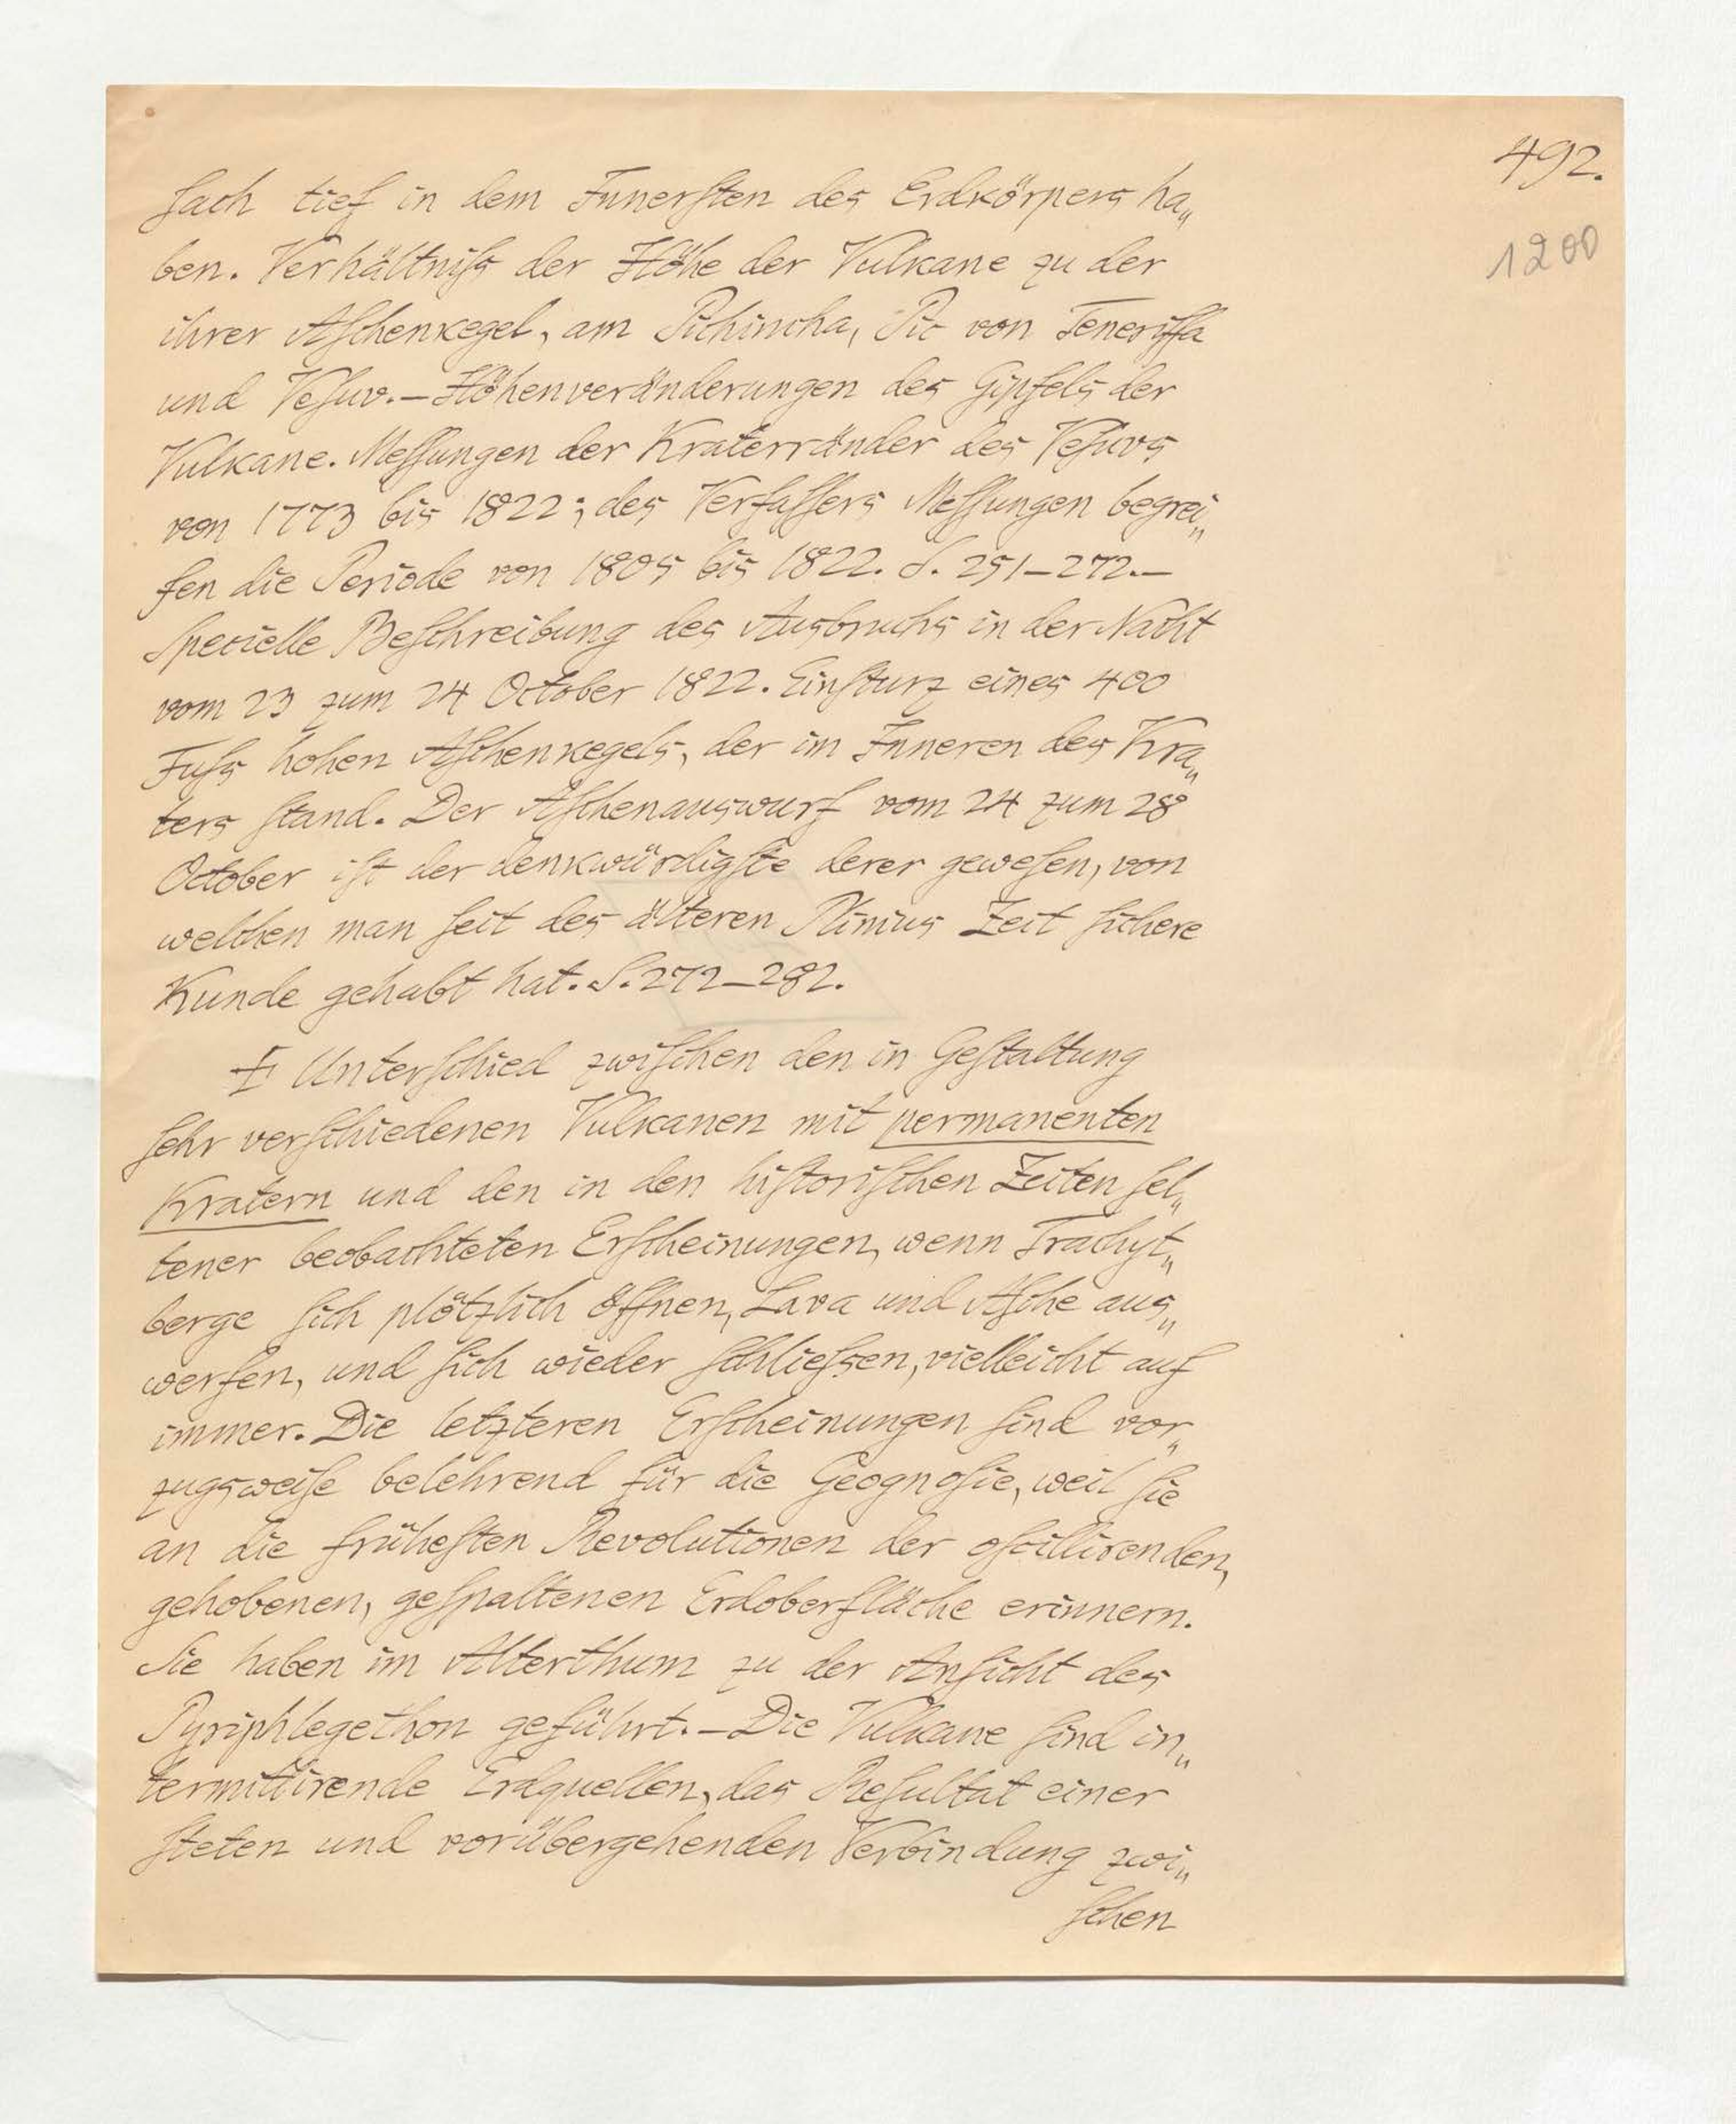 492.
1200
ſach tief in dem Innerſten des Erdkörpers ha„
ben. Verhältniſs der Höhe der Vulkane zu der
ihrer Aſchenkegel, am Pichincha, Pic von Teneriffa
und Veſuv.—Höhenveränderungen des Gipfels der
Vulkane. Meſſungen der Kraterränder des Veſuvs
von 1773 bis 1822; des Verfaſſers Meſſungen begrei„
fen die Periode von 1805 bis 1822. S. 251—272.—
Specielle Beſchreibung des Ausbruchs in der Nacht
vom 23 zum 24 October 1822. Einſturz eines 400
Fuſs hohen Aſchenkegels, der im Inneren des Kra„
ters ſtand. Der Aſchenauswurf vom 24 zum 28
October iſt der denkwürdigſte derer geweſen, von
welchen man ſeit des älteren Plinius Zeit ſichere
Kunde gehabt hat. S. 272—282.
I Unterſchied zwiſchen den in Geſtaltung
ſehr verſchiedenen Vulkanen mit permanenten
Kratern und den in den hiſtoriſchen Zeiten ſel„
tener beobachteten Erſcheinungen, wenn Trachyt„
berge ſich plötzlich öffnen, Lava und Aſche aus„
werfen, und ſich wieder ſchlieſsen, vielleicht auf
immer. Die letzteren Erſcheinungen ſind vor„
zugsweiſe belehrend für die Geognoſie, weil ſie
an die früheſten Revolutionen der oſcillirenden,
gehobenen, geſpaltenen Erdoberfläche erinnern.
Sie haben im Alterthum zu der Anſicht des
Pyriphlegethon geführt.—Die Vulkane ſind in„
termittirende Erdquellen, das Reſultat einer
ſteten und vorübergehenden Verbindung zwi„
ſchen